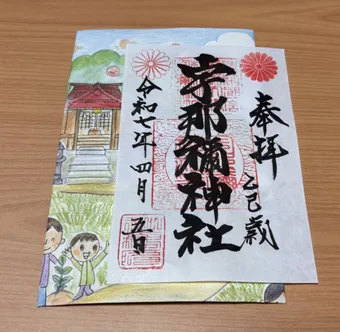 奉拝
乙巳歳
宇那禰神社
令和七年四月
五日